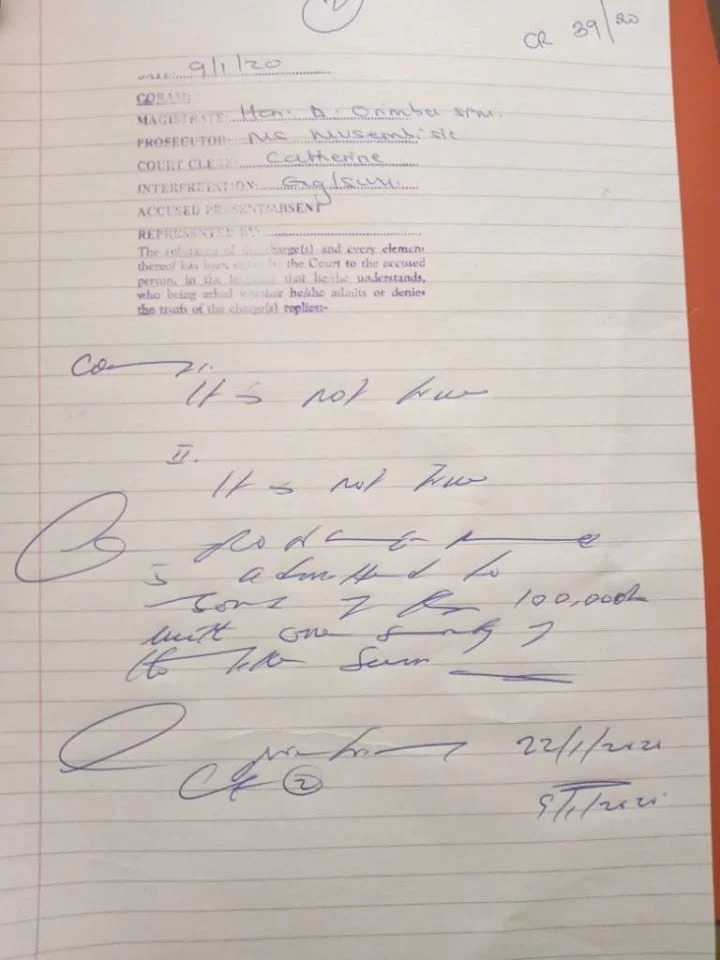 2
CR 39/20
DATE: 9/1/20
CORAM:
MAGISTRATE: Hon. D. Orimba SPM.
PROSECUTOR: Ms Musembi
COURT CLERK: Catherine
INTERPRETATION: Eng/Swa.
ACCUSED PRESENT/ABSENT
REPRESENTED BY:
The substance of the charge(s) and every element
thereof has been stated by the Court to the accused
person, in the language that he/she understands,
who being asked whether he/she admits or denies
the truth of the charge(s) replies:-
It is not true
II.
It is not true
is admitted to
bond of 100,000/=
with one surety of
the like sum
22/1/2020
9/1/2020